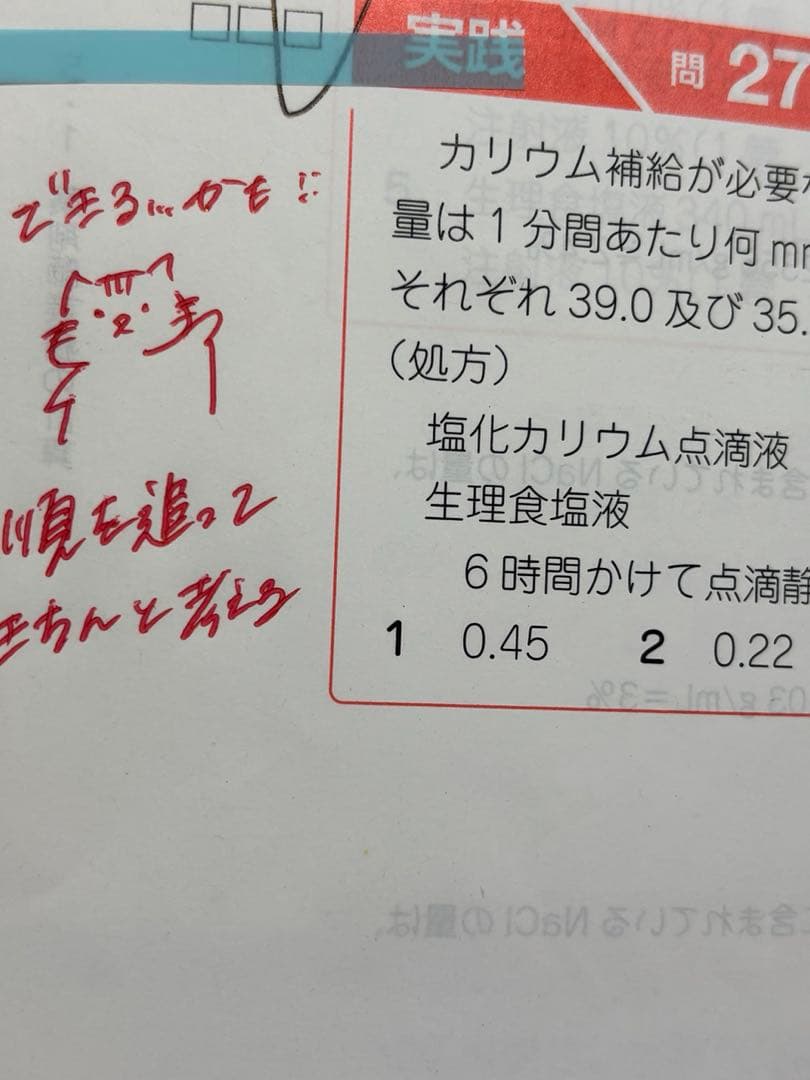 実践
問 27
カリウム補給が必要
量は1分間あたり何 m
それぞれ 39.0 及び 35.
(処方)
塩化カリウム点滴液
生理食塩液
6時間かけて点滴静
1 0.45 2 0.22
できる…かも!!
順を追って
きちんと考える